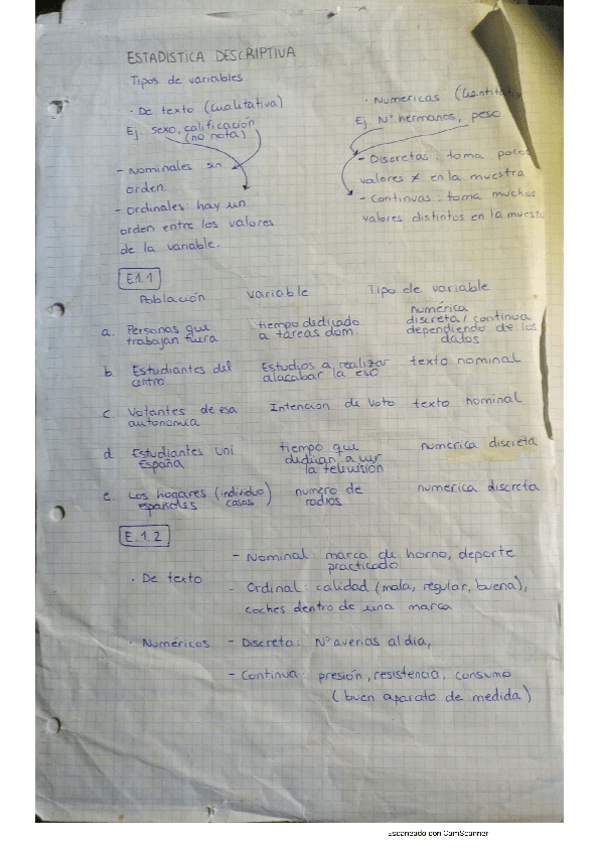 ESTADISTICA DESCRIPTIVA
Tipos de variables
· De texto (cualitativa)
Ej sexo, calificación
(no nota)
- Nominales sin
orden.
- Ordinales: hay un
orden entre los valores
de la variable.
· Numericas
Ej Nº hermanos, peso
- Discretas: toma pocos
valores ≠ en la muestra
- Continuas: toma muchos
valores distintos en la
E1.1
Población variable Tipo de variable
a. Personas que trabajan fuera
tiempo dedicado a tareas dom.
numérica discreta / continua dependiendo de los datos
b Estudiantes del centro
Estudios a realizar al acabar la eso
texto nominal
c Votantes de esa autonomia
Intencion de Voto
texto nominal
d Estudiantes uni España
tiempo que a ver la television
numerica discreta
e Los hogares (individuo casas) españoles
numero de radios
numerica discreta
E.1.2
· De texto
- Nominal: marca de horno, deporte
practicado
- Ordinal: calidad (mala, regular, buena),
coches dentro de una marca
· Numéricos - Discreta: Nº averias al dia,
- Continua: presión, resistencia, consumo
(buen aparato de medida)
Escaneado con CamScanner